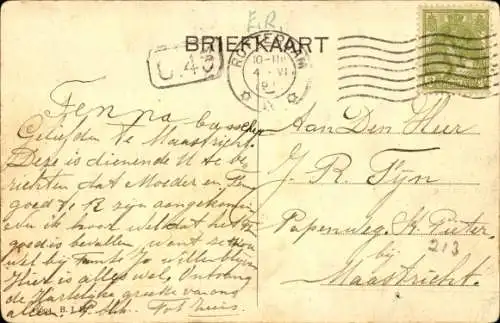 E.R.
BRIEFKAART
C.45
ROTTERDAM
10-11
4 VI
Fen na
Geliefden te Maastricht.
Deze is dienende U te be
richten dat Moeder en
goed te R zijn aangekomen
en ik hoor wel dat het
goed is bevallen, want
wel bij Tante Jo willen blijven
Hier is alles wel. Ontvang
de hartelijke groete van ons
allen. Tot huis.
Aan Den Heer
J. R. Fijn
Papenweg St. Pieter
213
bij
Maastricht.